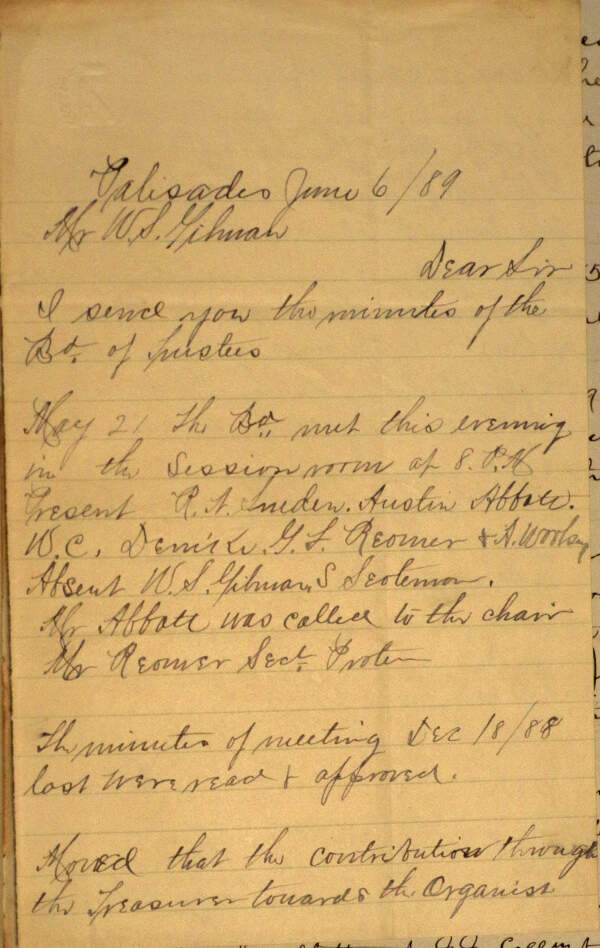 Palisades June 6/89
Mr W. S. Gilman
Dear Sir
I send you the minutes of the
Bd. of trustees
May 21 The Bd. met this evening
in the Session room at 8. P.M
Present R. A. Austin Abbott.
W. C. Denike G. F. Reomer & A. Woolsey
Absent W. S. Gilman, S
Mr Abbott was called to the chair
Mr Reomer Sect. Protem
The minutes of meeting Dec 18/88
last were read & approved.
Moved that the contribution through
the Treasurer towards the Organist